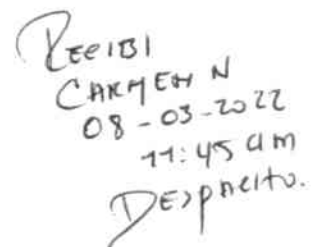 Recibi
Carmen N
08-03-2022
11:45 am
Despacito.